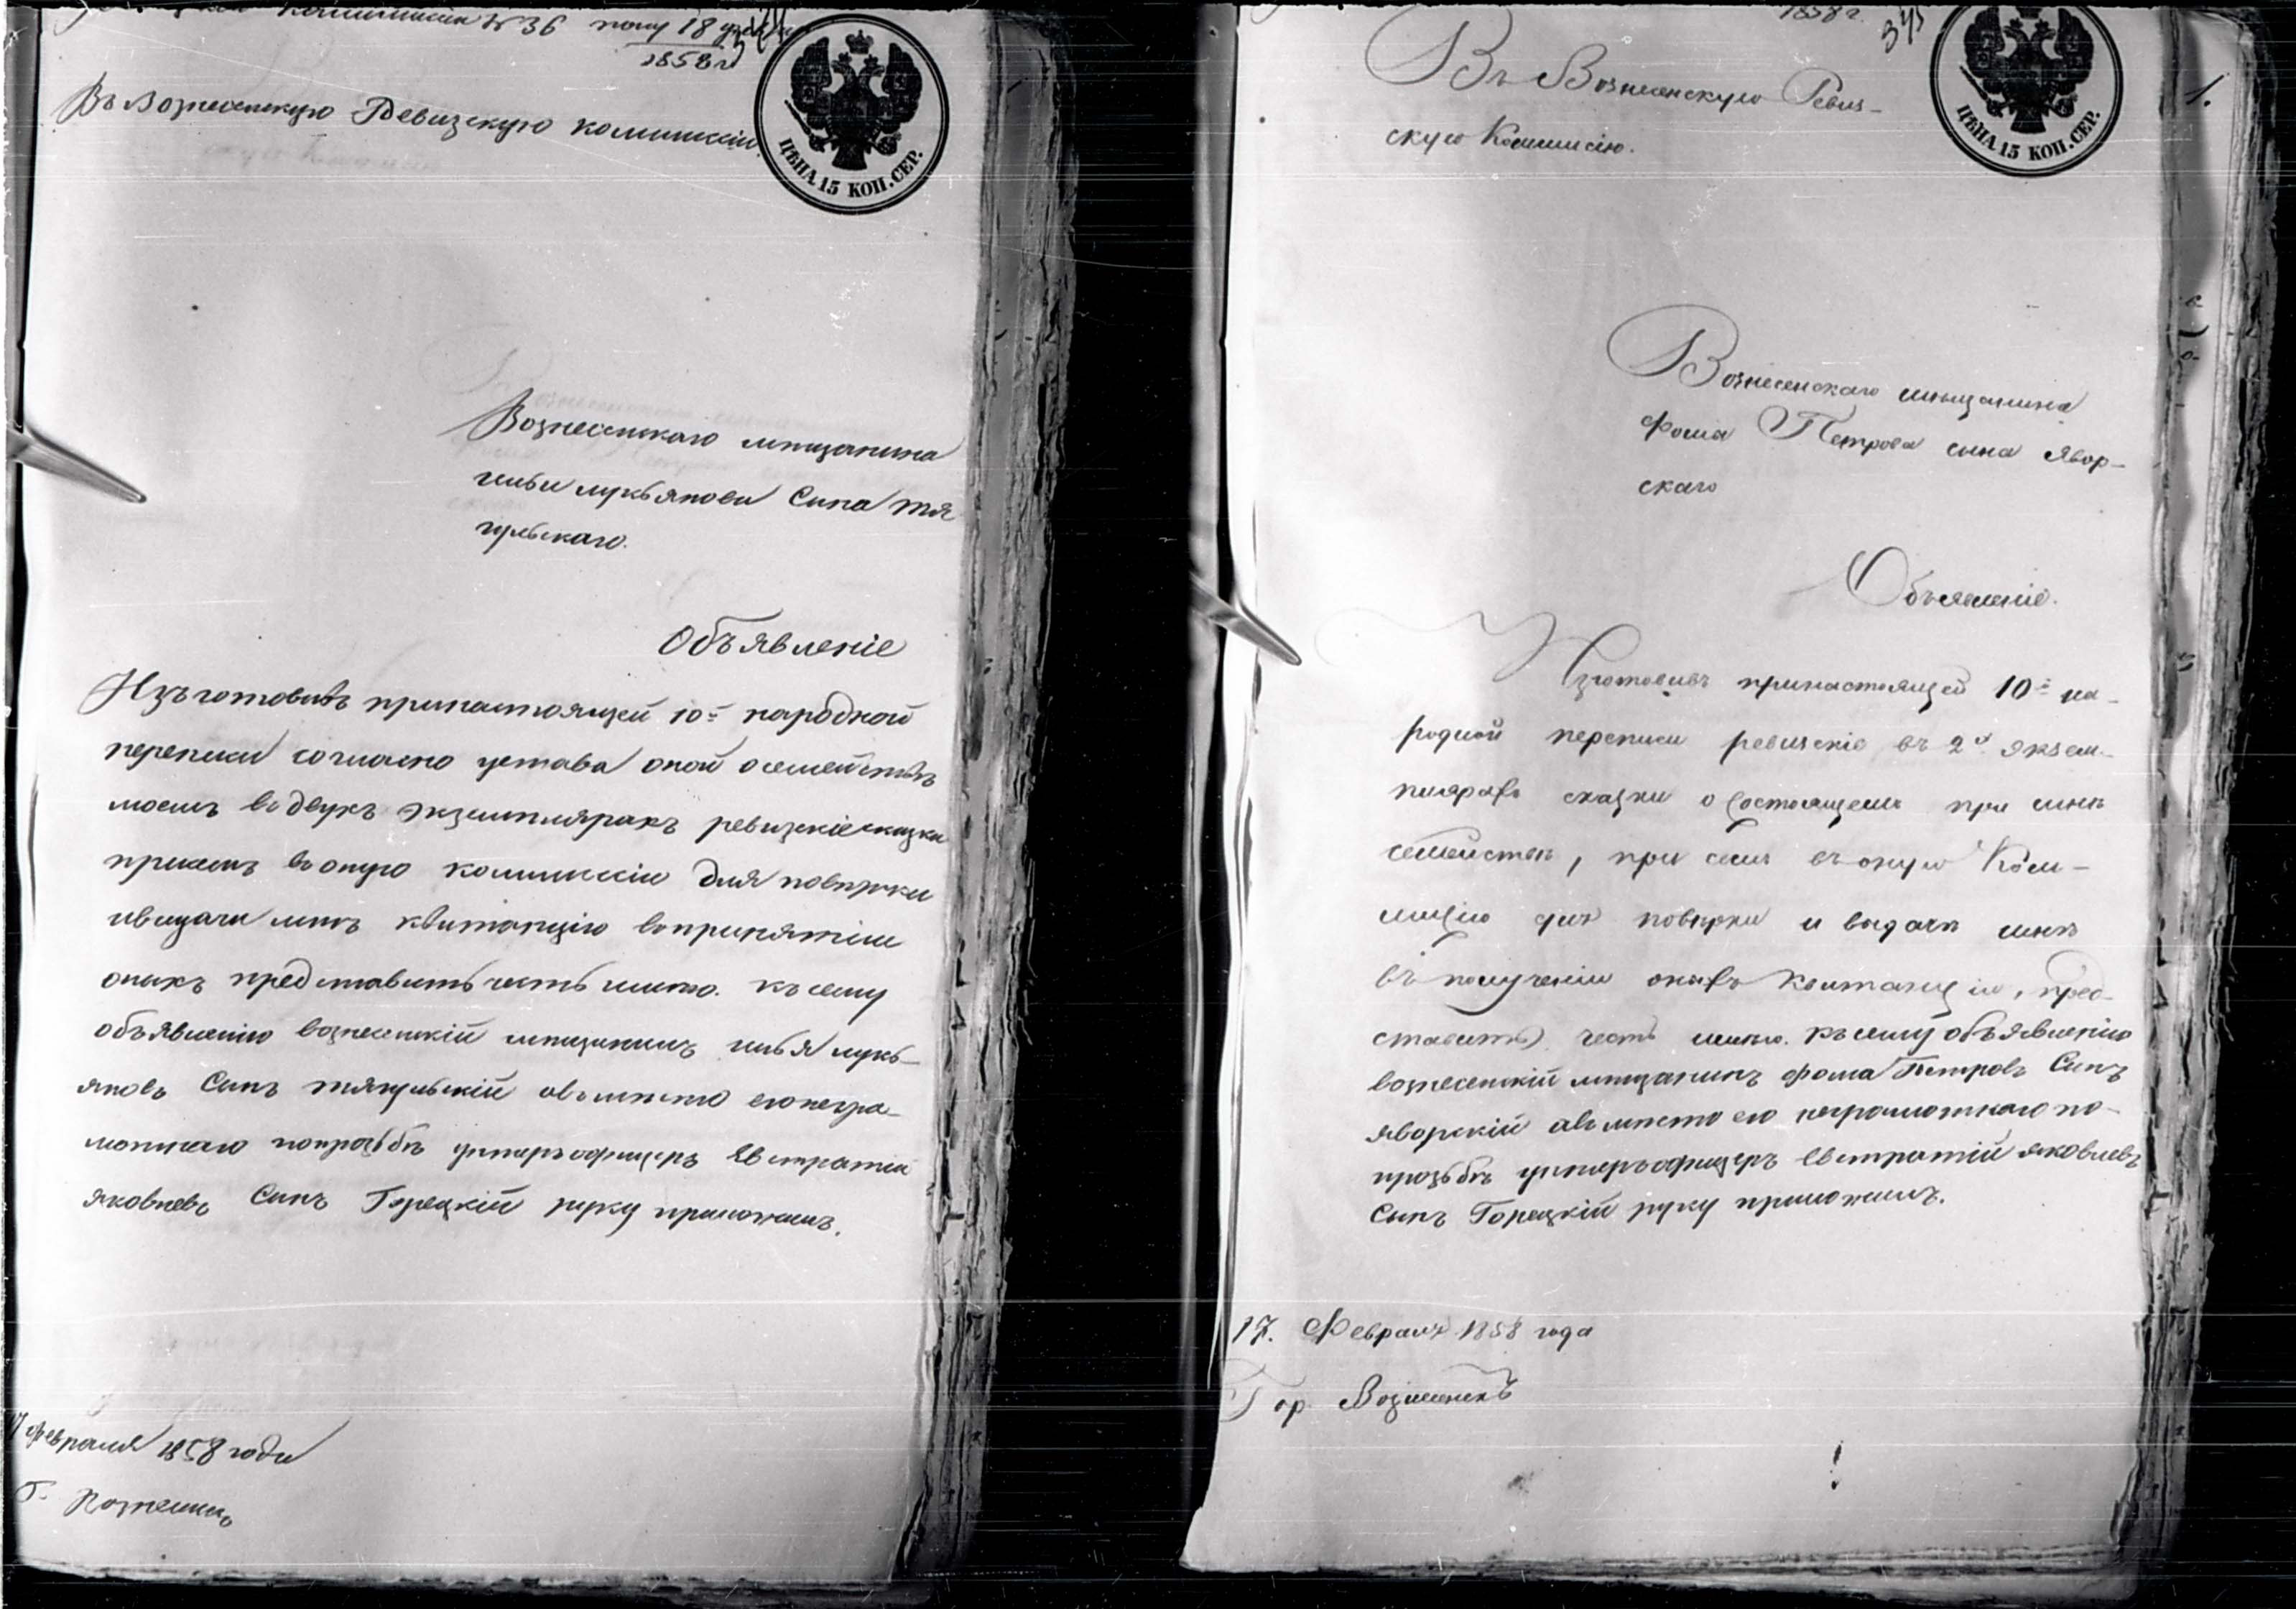 Коммиссіи № 36 полу 18
1858 г
Въ Вознесенскую Ревизскую комиссію.
ЦѢНА 15 КОП. СЕР.
Вознесенскаго мѣщанина
ильи лукьянова Сина тя
гульскаго.
Объявленіе
Изъготовивъ принастоящей 10й народной
переписи согласно устава оной осемействѣ
моемъ въ двухъ экземплярахъ ревизскіе сказки
присемъ въ оную комиссію для повѣрки
ивидачи мнѣ квитанцію вопринятіи
оныхъ представить честь имѣю. къ сему
объявленію вознесенскій мѣщанинъ илья лукь-
яновъ Синъ тягульскій авъмѣсто егонегра-
мотнаго попрозьбѣ унтеръофицеръ Евстратій
яковлевъ Синъ Горецкій руку приложилъ.
17 февраля 1858 года
Г. Вознесенскъ
1858 г.
345
Въ Вознесенскую Ревиз-
скую Коммисію.
ЦѢНА 15 КОП. СЕР.
Вознесенскаго мѣщанина
Фома Петрова сына Явор-
скаго
Объявленіе.
Изготовивъ принастоящей 10й на-
родной переписи ревизскіе въ 2х экзем-
плярахъ сказки о состоящемъ при мнѣ
семействѣ, при семъ въ оную Ком-
мисію для повѣрки и выдачи мнѣ
въ полученіи оныхъ Квитанціи, пред-
ставить честь имѣю. Къ сему объявленію
вознесенскій мѣщанинъ фома Петровъ Синъ
яворскій авъмѣсто его неграмотнаго по-
прозьбѣ унтеръофицеръ Евстратій яковлевъ
Сынъ Горецкій руку приложилъ.
17. Февраля 1858 года
Гор. Вознесенскъ